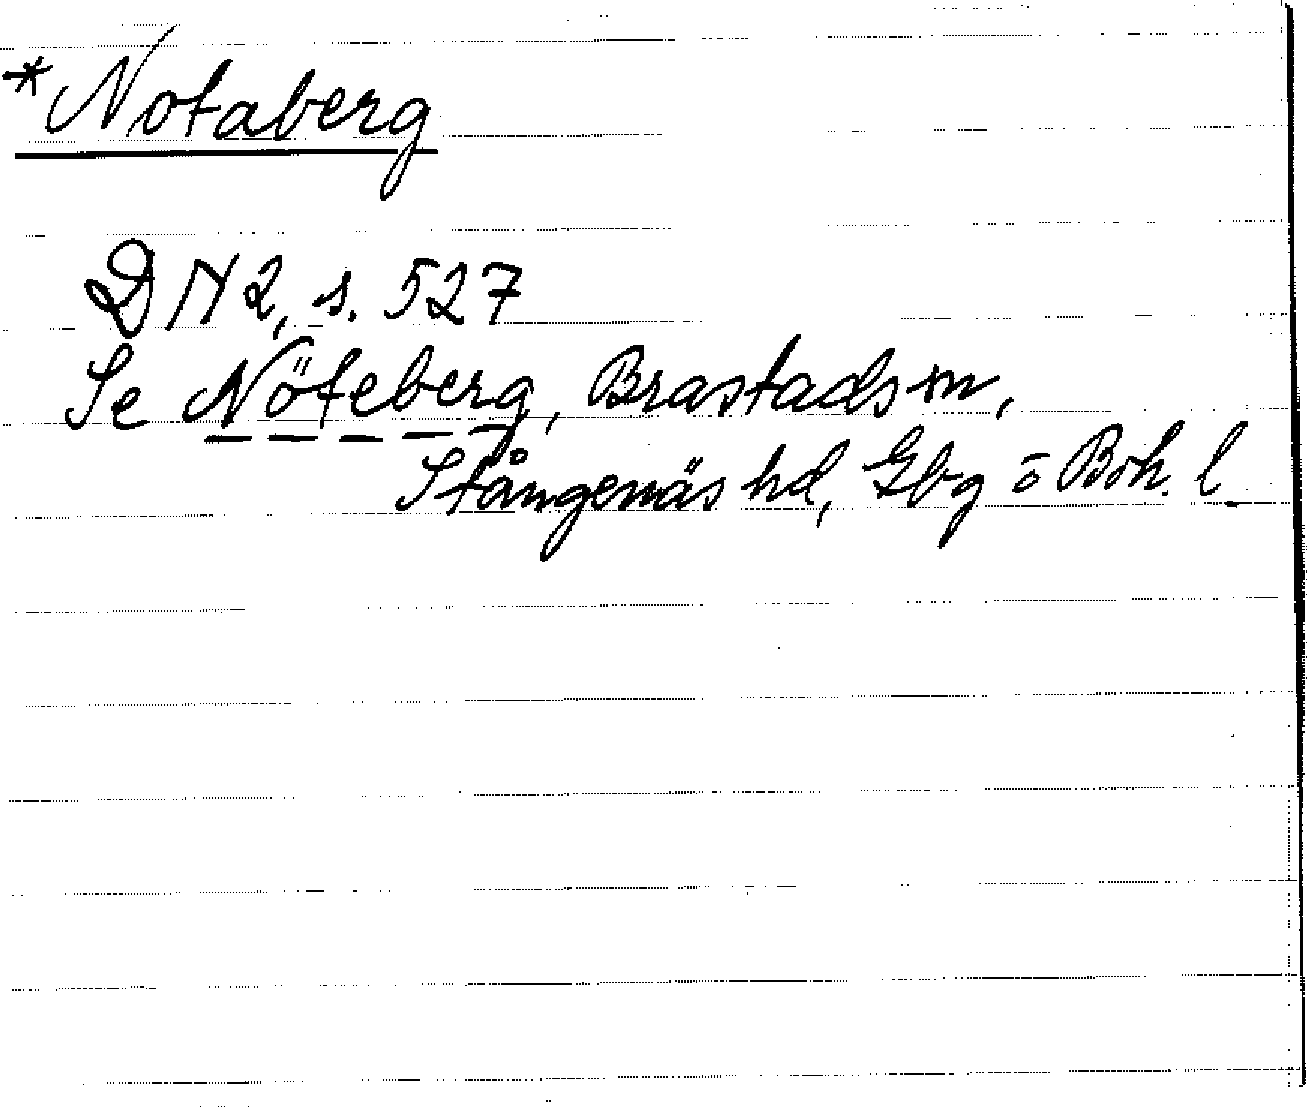 *Notaberg
DN 2, s. 527
Se Nöteberg, Brastads sn,
Stångenäs hd, Gbg o Boh. l.